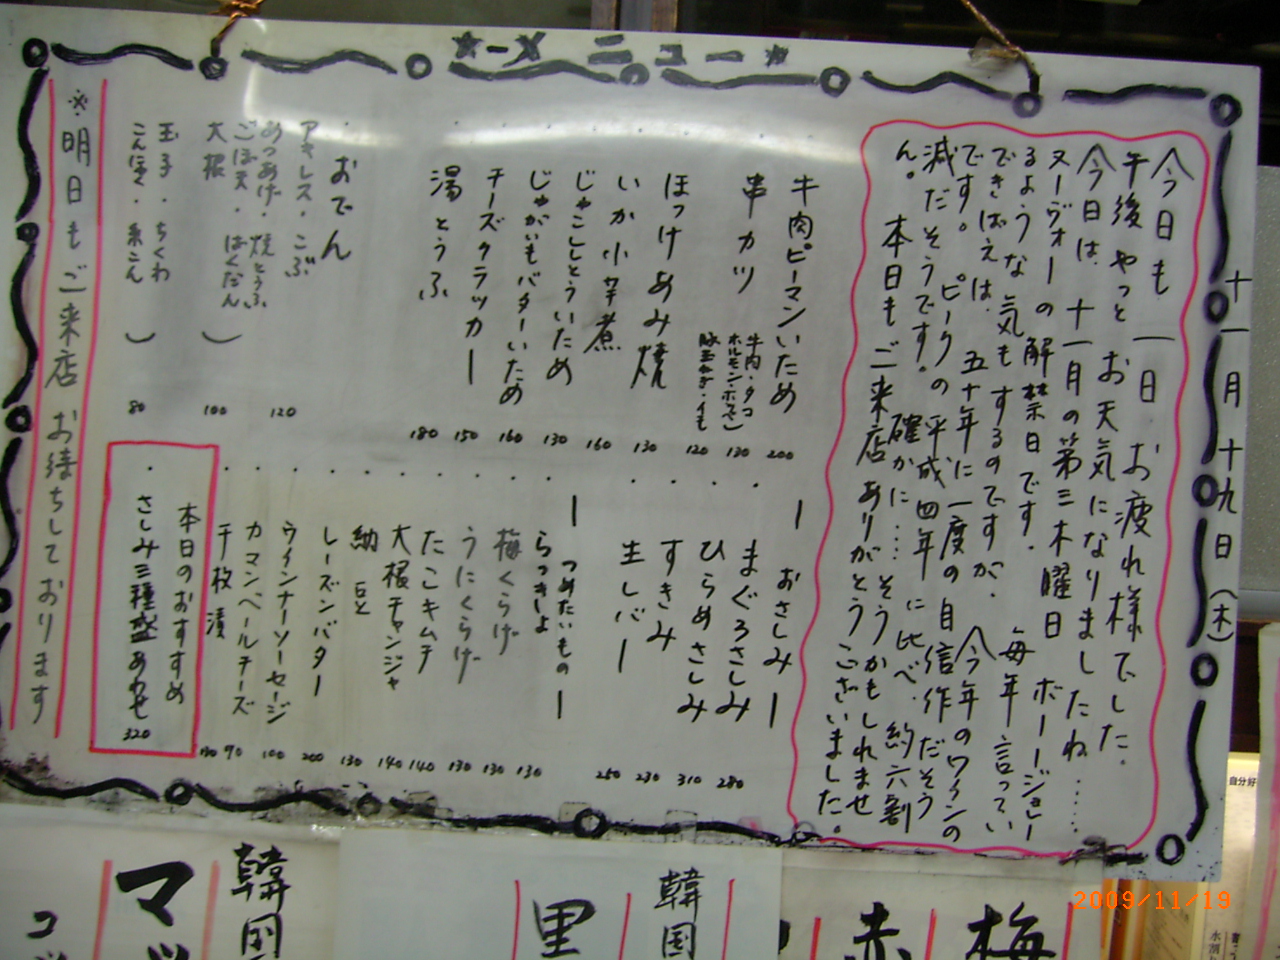 ★メニュー★
十一月十九日(木)
今日も一日お疲れ様でした。
午後やっとお天気になりましたね……
今日は、十一月の第三木曜日 ボージョレー
ヌーヴォーの解禁日です。毎年言ってい
るような気もするのですが、今年のワインの
できばえは、五十年に一度の自信作だそう
です。ピークの平成四年に比べ、約六割
減だそうです。確かに……そうかもしれませ
ん。本日もご来店ありがとうございました。
牛肉ピーマンいため 200
串カツ
牛肉・タコ 130
ホルモン・
豚玉ねぎ・イモ 120
ほっけあみ焼 130
いか小芋煮 160
じゃこししとういため 130
じゃがいもバターいため 160
チーズクラッカー 150
湯とうふ 180
おでん
アキレス・こぶ 120
あつあげ・焼とうふ
ごぼ天・ばくだん
大根 100
玉子・ちくわ
こんにゃく・糸こん 80
ーおさしみー
まぐろさしみ 280
ひらめさしみ 310
すきみ 230
生レバー 250
ーつめたいものー
らっきょ 130
梅くらげ 130
うにくらげ 130
たこキムチ 140
大根チャンジャ 140
納豆 130
レーズンバター 200
ウインナーソーセージ 100
カマンベールチーズ 90
千枚漬 130
本日のおすすめ
さしみ三種盛あわせ 320
※明日もご来店お待ちしております
梅
赤
韓国
里
韓国
マッ
コッ
自分好
水割
2009/11/19